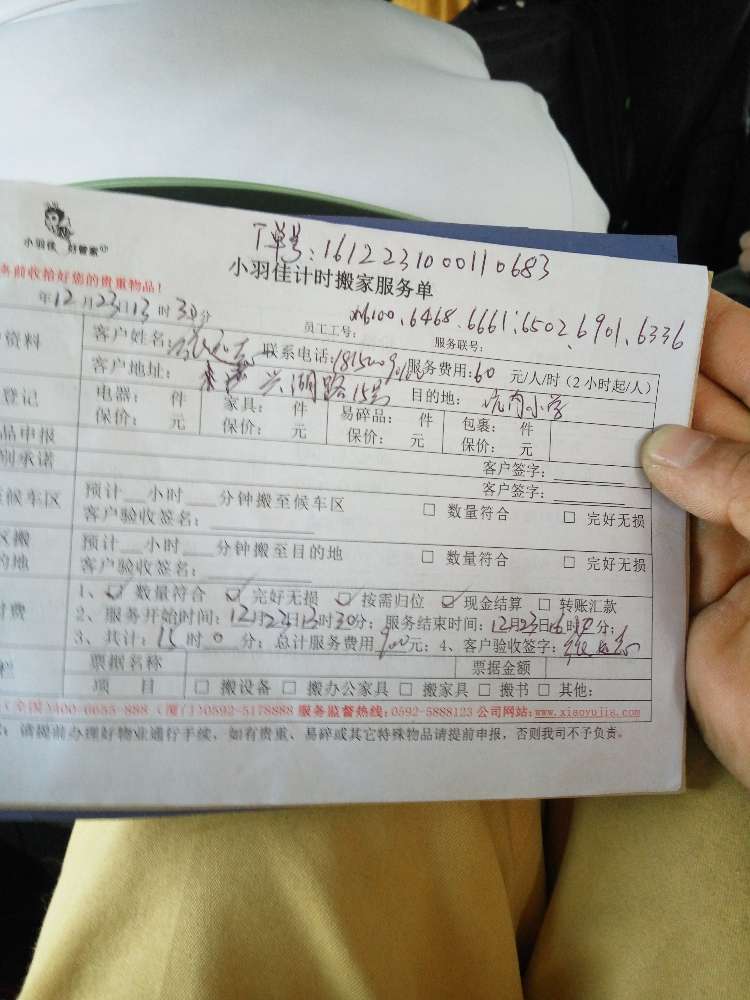 小羽佳 好管家
订单号:161223100110683
务前收拾好您的贵重物品!
小羽佳计时搬家服务单
年12月23日13时30分
员工工号: 6100、6468、6661、6502、6901、6336
服务联号:
资料 客户姓名: 联系电话: 服务费用:60 元/人/时(2小时起/人)
客户地址: 兴湖路15号 目的地: 坑内小学
登记 电器: 件 家具: 件 易碎品: 件 包裹: 件
保价: 元 保价: 元 保价: 元 保价: 元
品申报 客户签字:
别承诺 客户签字:
候车区 预计__小时__分钟搬至候车区 □ 数量符合 □ 完好无损
客户验收签名:
区搬 预计__小时__分钟搬至目的地 □ 数量符合 □ 完好无损
的地 客户验收签名:
付费 1、☑ 数量符合 ☑ 完好无损 ☑ 按需归位 ☑ 现金结算 □ 转账汇款
2、服务开始时间:12月23日13时30分; 服务结束时间:12月23日16时 分;
3、共计:15时0分; 总计服务费用900元; 4、客户验收签字:
栏 票据名称 票据金额
项 目 □ 搬设备 □ 搬办公家具 □ 搬家具 □ 搬书 □ 其他:
(全国)400-6655-888 (厦门)0592-5178888 服务监督热线:0592-5888123 公司网站:www.xiaoyujia.com
:请提前办理好物业通行手续,如有贵重、易碎或其它特殊物品请提前申报,否则我司不予负责。